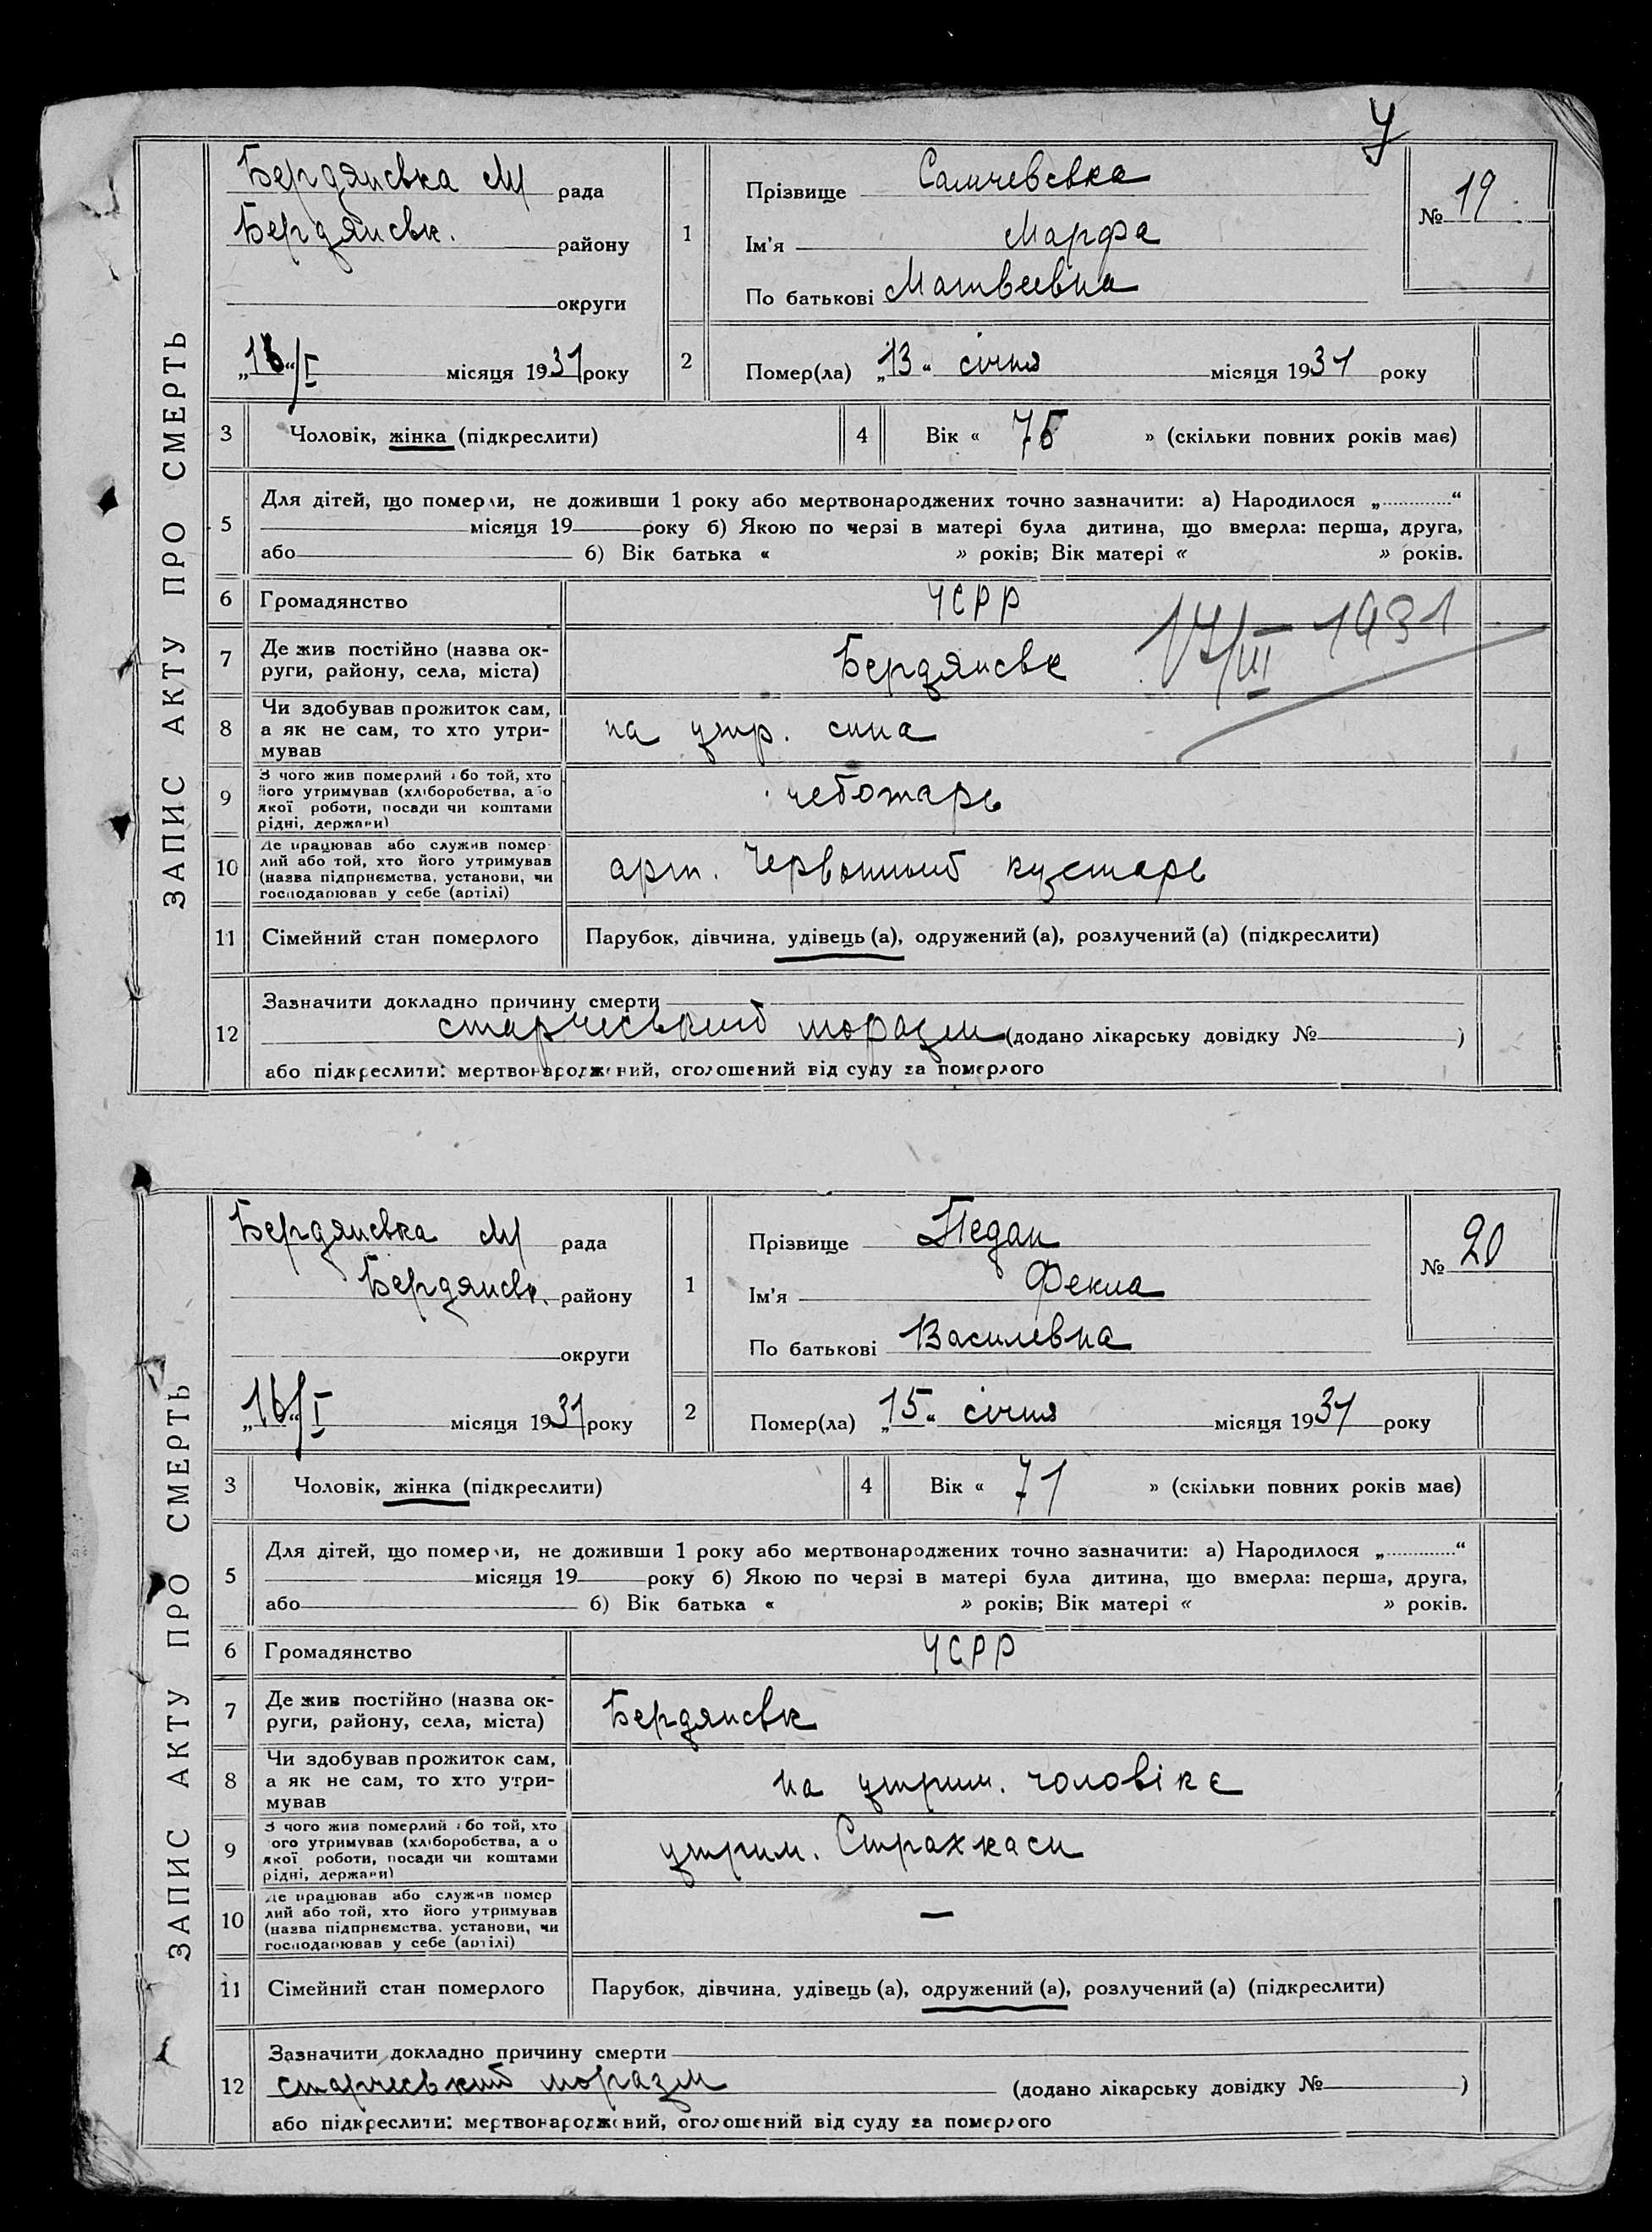 У
ЗАПИС АКТУ ПРО СМЕРТЬ
Бердянська М/ рада
Бердянськ. району
округи
„16“/I місяця 1931 року
1
Прізвище
Ім'я Марфа
По батькові Матвеевна
№ 19
2
Помер(ла) „13“ січня місяця 1931 року
3 Чоловік, жінка (підкреслити)
4 Вік « 75 » (скільки повних років має)
5
Для дітей, що померли, не доживши 1 року або мертвонароджених точно зазначити: а) Народилося „............“
місяця 19 року б) Якою по черзі в матері була дитина, що вмерла: перша, друга,
або б) Вік батька « » років; Вік матері « » років.
6 Громадянство УСРР
17/III 1931
7 Де жив постійно (назва ок-
руги, району, села, міста)
Бердянськ
8 Чи здобував прожиток сам,
а як не сам, то хто утри-
мував
на утр. сина
9 З чого жив померлий або той, хто
його утримував (хліборобства, або
якої роботи, посади чи коштами
рідні, держави)
чеботарь
10 Де працював або служив помер-
лий або той, хто його утримував
(назва підприємства, установи, чи
господарював у себе (артілі)
арт. Червонный кустарь
11 Сімейний стан померлого Парубок, дівчина, удівець (а), одружений (а), розлучений (а) (підкреслити)
12 Зазначити докладно причину смерти
старческий моразм (додано лікарську довідку № )
або підкреслити: мертвонароджений, оголошений від суду за померлого
ЗАПИС АКТУ ПРО СМЕРТЬ
Бердянська М/ рада
Бердянськ. району
округи
„16“/I місяця 1931 року
1
Прізвище Педан
Ім'я Фекла
По батькові Василевна
№ 20
2
Помер(ла) „15“ січня місяця 1931 року
3 Чоловік, жінка (підкреслити)
4 Вік « 71 » (скільки повних років має)
5
Для дітей, що померли, не доживши 1 року або мертвонароджених точно зазначити: а) Народилося „............“
місяця 19 року б) Якою по черзі в матері була дитина, що вмерла: перша, друга,
або б) Вік батька « » років; Вік матері « » років.
6 Громадянство УСРР
7 Де жив постійно (назва ок-
руги, району, села, міста)
Бердянськ
8 Чи здобував прожиток сам,
а як не сам, то хто утри-
мував
на утрим. чоловіка
9 З чого жив померлий або той, хто
його утримував (хліборобства, або
якої роботи, посади чи коштами
рідні, держави)
утрим. Страхкаси
10 Де працював або служив помер
лий або той, хто його утримував
(назва підприємства, установи, чи
господарював у себе (артілі)
—
11 Сімейний стан померлого Парубок, дівчина, удівець (а), одружений (а), розлучений (а) (підкреслити)
12 Зазначити докладно причину смерти
старческий моразм (додано лікарську довідку № )
або підкреслити: мертвонароджений, оголошений від суду за померлого